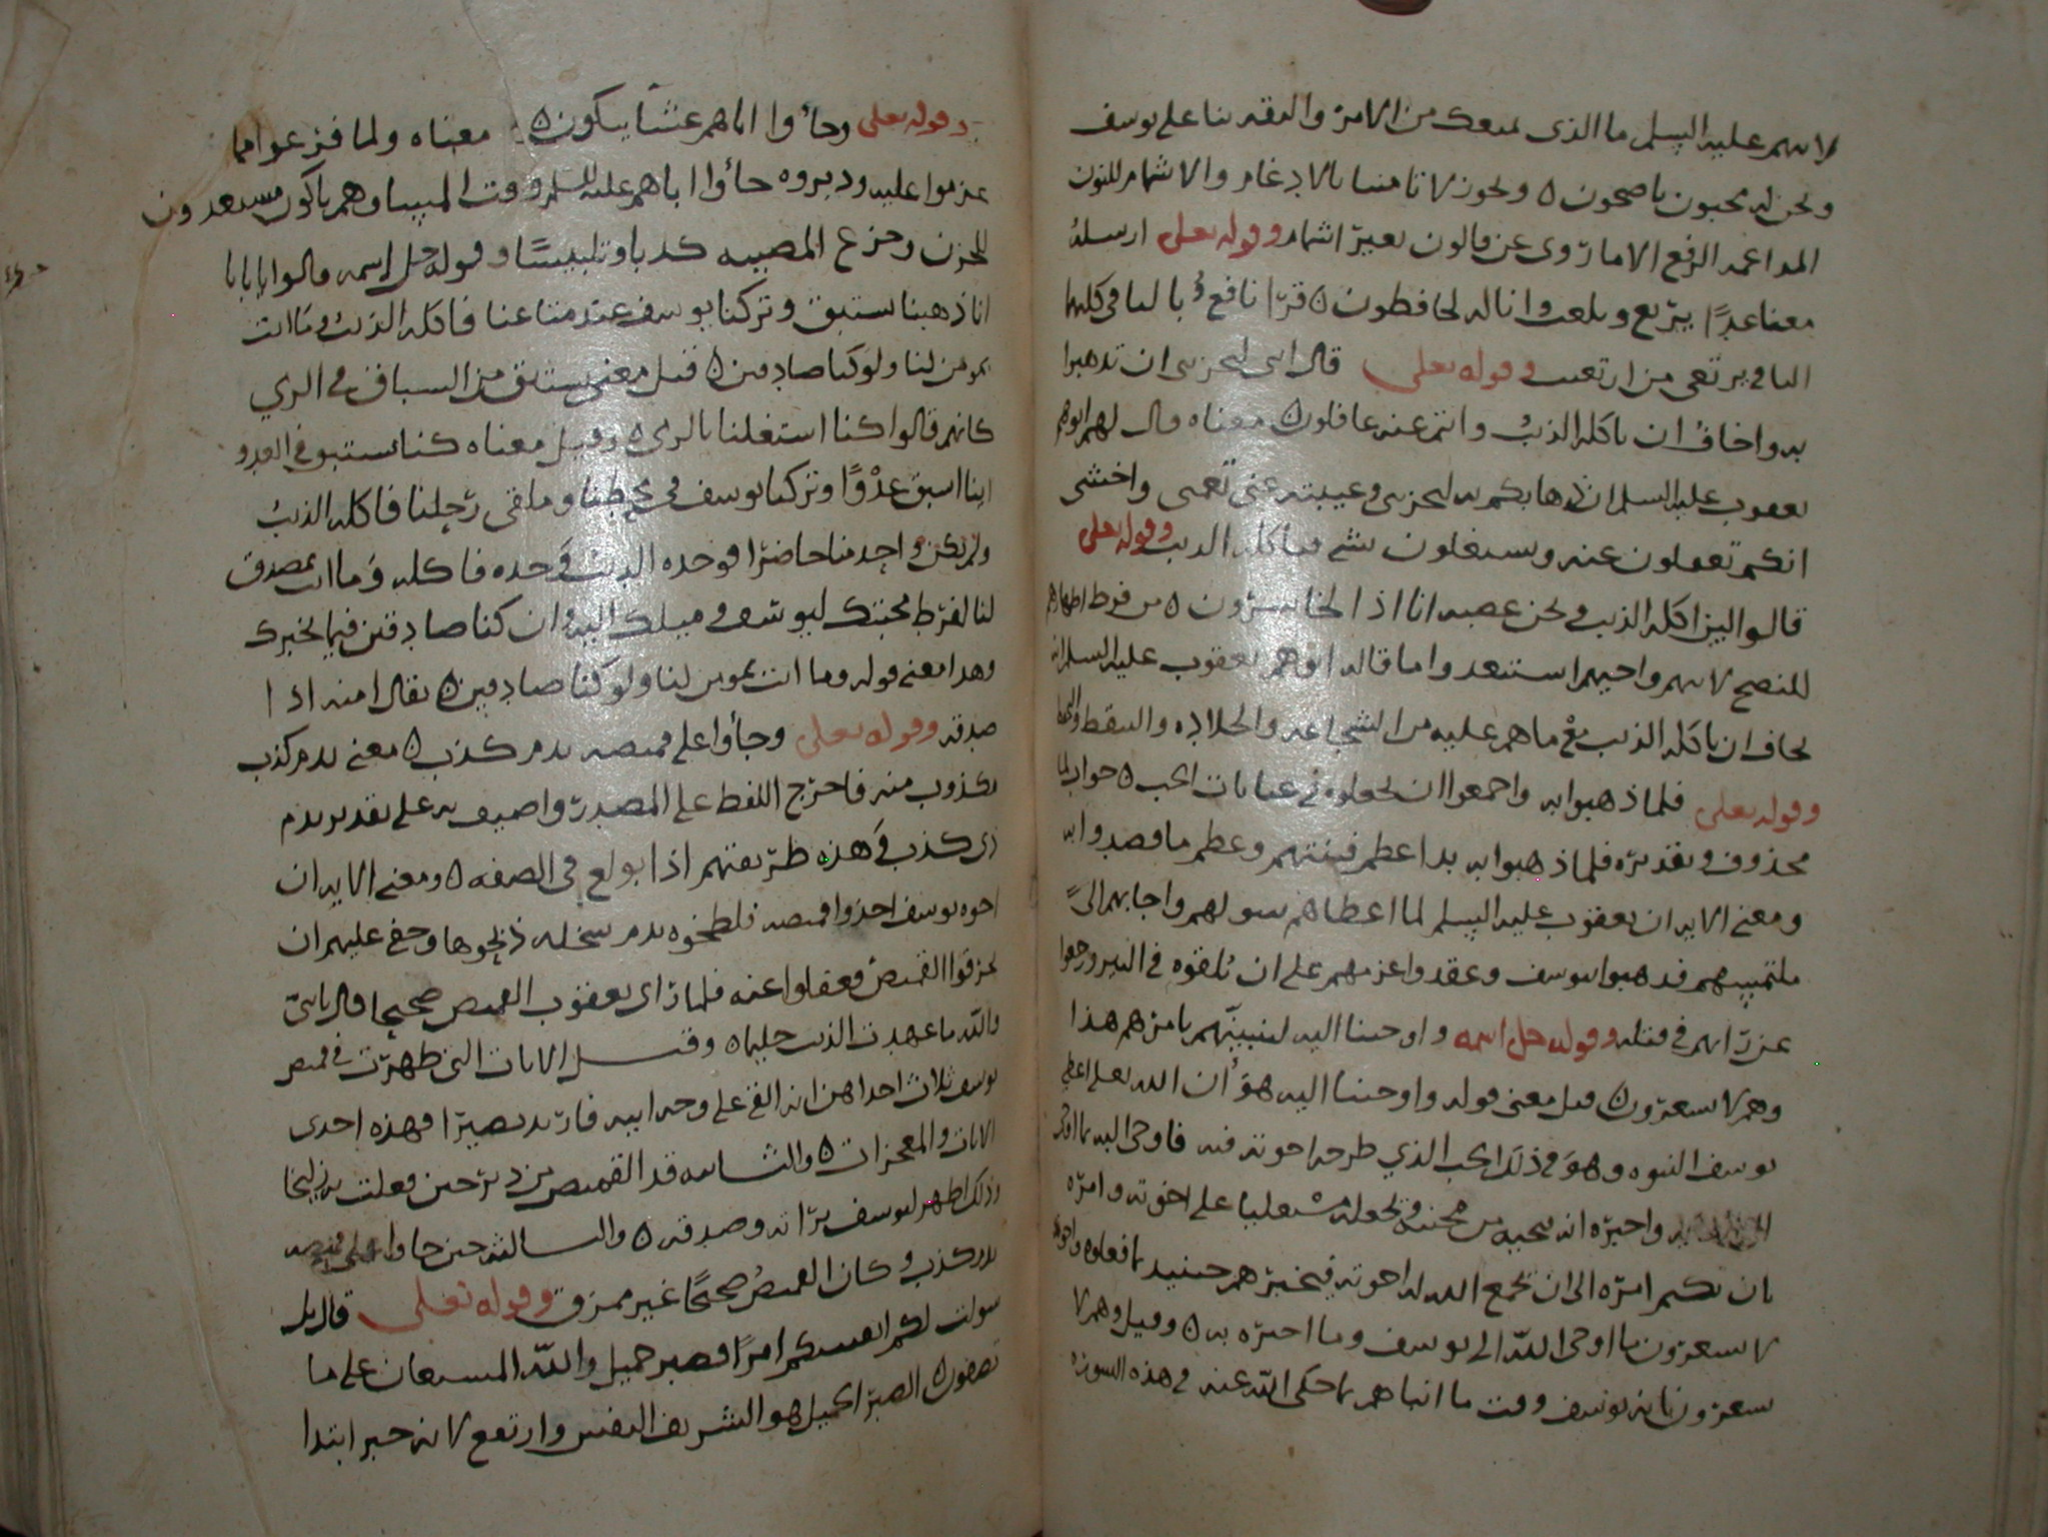 لابيهم عليه السلم ما الذى يمنعك من الامن والثقه بنا على يوسف
ونحن له محبون ناصحون ٥ ويجوز لا تامنا بالادغام والاشمام للنون
المدغمه الرفع الا ما روى عن قالون بغير اشمام وقوله تعلى ارسله
معنا غدًا يرتع ويلعب وانا له لحافظون ٥ قرا نافع باليا فى كليهما
قال انى ليحزننى ان تذهبوا وقوله تعلى
به واخاف ان ياكله الذئب وانتم عنه غافلون ٥ معناه قال لهم ابوهم
يعقوب عليه السلم ان ذهابكم به ليحزننى وغيبته عنى تغمنى واخشى
انكم تغفلون عنه وتشتغلون بشى فياكله الذيب وقوله تعلى
قالوا لين اكله الذيب ونحن عصبه انا اذا لخاسرون ٥ من فرط اظهارهم
للنصح لابيهم واخيهم استبعدوا ما قاله ابوهم يعقوب عليه السلم انه
يخاف ان ياكله الذيب مع ما هم عليه من الشجاعه والجلاده والتيقظ
وقوله تعلى فلما ذهبوا به واجمعوا ان يجعلوه فى غيابات الجب ٥ جواب لما
محذوف وتقديره فلما ذهبوا به بدا عظم فتنتهم وعظم ما قصدوا به
ومعنى الايه ان يعقوب عليه السلم لما اعطاهم سولهم واجابهم الى
ملتمسهم فذهبوا بيوسف وعقدوا عزمهم على ان يلقوه فى البير ورجعوا
عن رايهم فى قتله وقوله جل اسمه واوحينا اليه لتنبينهم بامرهم هذا
وهم لا يشعرون ٥ قيل معنى قوله واوحينا اليه هو ان الله تعلى اعطى
يوسف النبوه وهو فى ذلك الجب الذي طرحه اخوته فيه فاوحى اليه بما
واخبره انه ينجيه من محنته ويجعله مستعليا على اخوته وامره
بان يكتم امره الى ان يجمع الله له اخوته فيخبرهم حينيد بما فعلوه
لا يشعرون بما اوحى الله الى يوسف وما اخبره به ٥ وقيل وهم لا
يشعرون بانه يوسف وقت ما انباهم بما حكى الله عنه فى هذه السوره
وقوله تعلى وجاوا اباهم عشا يبكون ٥ معناه ولما فرغوا مما
عزموا عليه ودبروه جاوا اباهم عليه السلم وقت المسا وهم باكون مستعدون
للحزن وجزع المصيبه كذبا وتلبيسًا وقوله جل اسمه قالوا يا ابانا
انا ذهبنا نستبق وتركنا يوسف عند متاعنا فاكله الذئب وما انت
بمومن لنا ولو كنا صادقين ٥ قيل معنى نستبق من السباق فى الرمي
كانهم قالوا كنا اشتغلنا بالرمى ٥ وقيل معناه كنا نستبق فى العدو
اينا اسبق عدوًا وتركنا يوسف فى محطنا وملقى رحلنا فاكله الذئب
ولم يكن واحد منا حاضرا فوجده الذئب وحده فاكله وما انت بمصدق
لنا لفرط محبتك ليوسف وميلك اليه وان كنا صادقين فيما نخبرك
وهذا معنى قوله وما انت بمومن لنا ولو كنا صادقين ٥ يقال امنه اذا
صدقه وقوله تعلى وجاوا على قميصه بدم كذب ٥ معنى بدم كذب
مكذوب منه فاخرج اللفظ على المصدر واضيف به على تقدير بدم
ذى كذب وهذه طريقتهم اذا بولغ فى الصفه ٥ ومعنى الايه ان
اخوه يوسف اخذوا قميصه فلطخوه بدم سخله ذبحوها وخفى عليهم ان
يخرقوا القميص وغفلوا عنه فلما راى يعقوب القميص صحيحا قال يا بنى
والله ما عهدت الذيب حليما ٥ وقيل الايات التى ظهرت فى قميص
يوسف ثلاث احداهن انه القى على وجه ابيه فارتد بصيرا فهذه احدى
الايات والمعجزات ٥ والثانيه قد القميص من دبر حين فعلت به زليخا
ذلك ليظهر ليوسف براته وصدقه ٥ والثالثه حين جاوا على قميصه
بدم كذب وكان القميص صحيحًا غير ممزق وقوله تعلى قال بل
سولت لكم انفسكم امرًا فصبر جميل والله المستعان على ما
تصفون ٥ الصبر الجميل هو الشريف النفيس وارتفع لانه خبر ابتدا